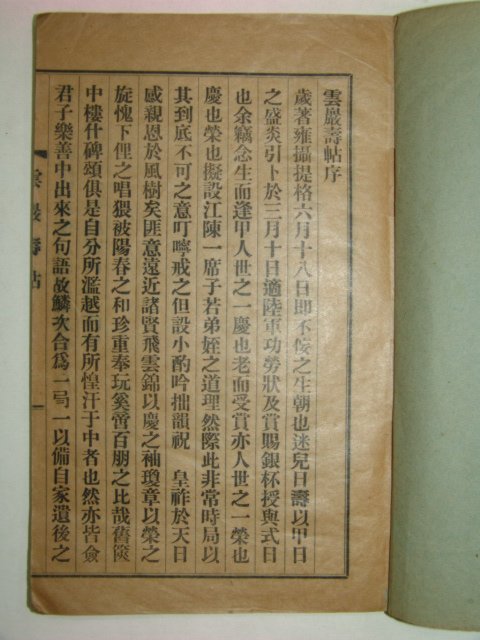 雲巖壽帖序
歲著雍攝提格六月十八日卽不佞之生朝也迷兒曰壽以甲日
之盛炎引卜於三月十日適陸軍功勞狀及賞賜銀杯授與式日
也余竊念生而逢甲人世之一慶也老而受賞亦人世之一榮也
慶也榮也擬設江陳一席子若弟姪之道理然際此非常時局以
其到底不可之意叮嚀戒之但設小酌吟拙韻祝 皇祚於天日
感親恩於風樹矣匪意遠近諸賢飛雲錦以慶之袖瓊章以榮之
旋愧下俚之唱猥被陽春之和珍重奉玩奚啻百朋之比哉舊篋
中樓什碑頌俱是自分所濫越而有所惶汗于中者也然亦皆僉
君子樂善中出來之句語故鱗次合爲一局一以備自家遺後之
雲巖壽帖
一